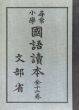 尋常
小學
國語讀本
全十二卷
文部省